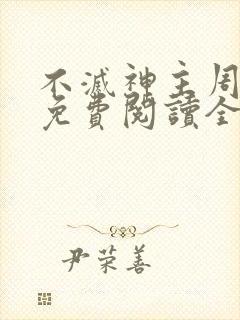 不滅神主周
免費閱讀全
尹荣善